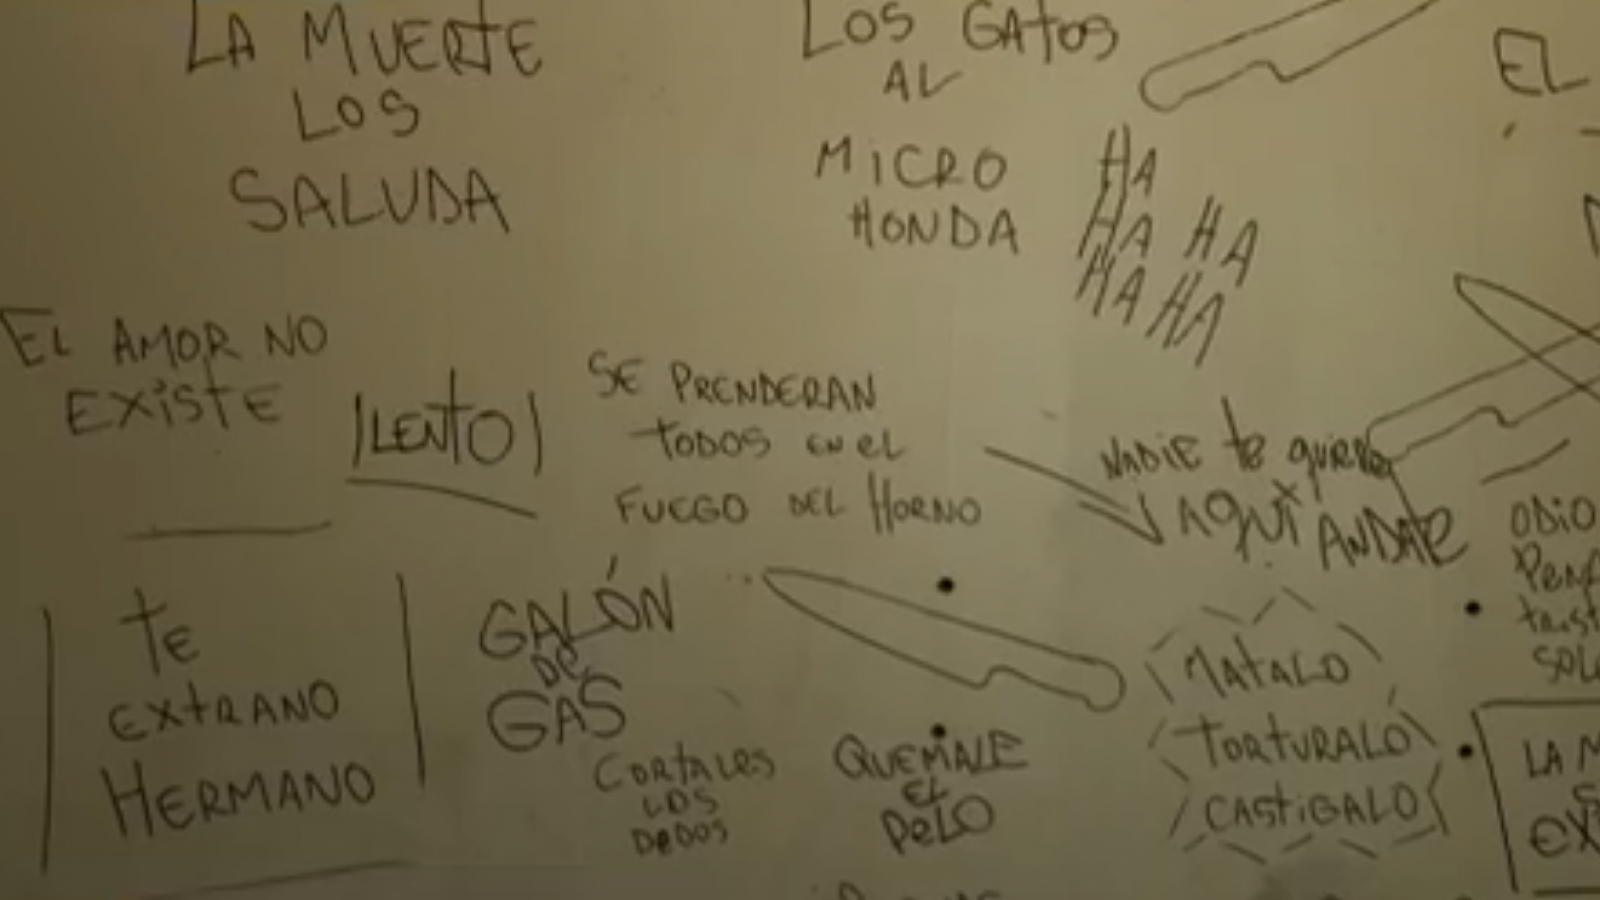 LA MUERTE
LOS
SALUDA
LOS GATOS
AL
MICRO
HONDA
HA
HA HA
HA HA
EL
EL AMOR NO
EXISTE
LENTO
SE PRENDERAN
TODOS EN EL
FUEGO DEL HORNO
NADIE te quiere
AQUÍ ANDATE
ODIO
TE
EXTRANO
HERMANO
GALÓN
DE
GAS
CORTALES
LOS
DEDOS
QUEMALE
EL
PELO
MATALO
TORTURALO
CASTIGALO
LA